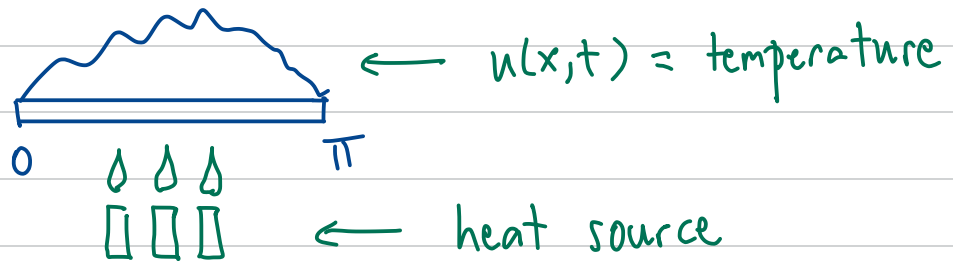 ← u(x,t) = temperature
0 π
← heat source